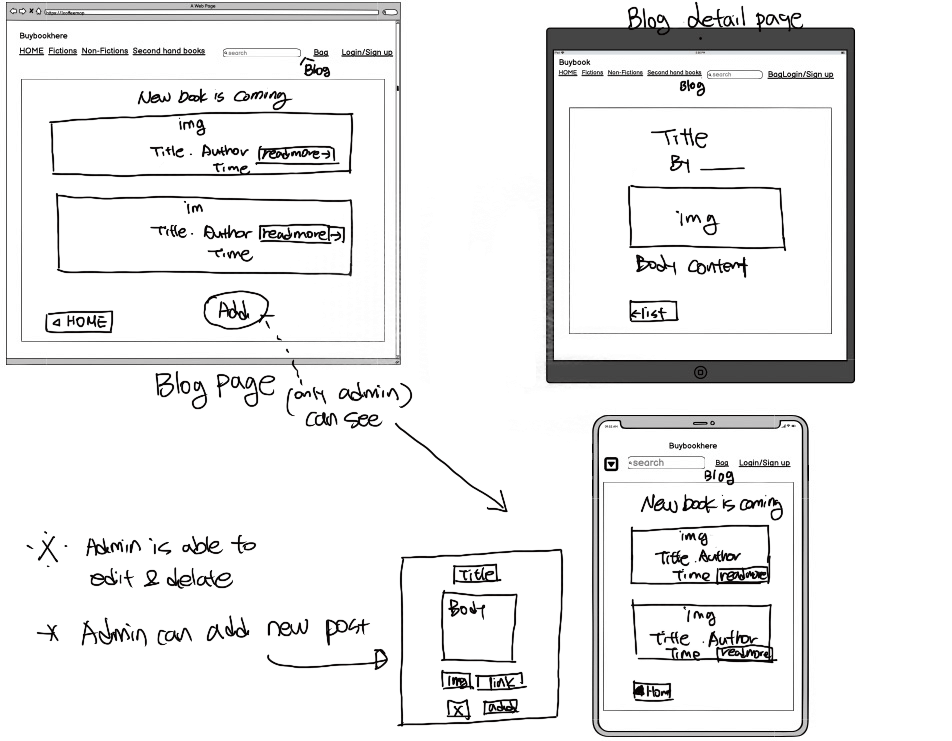 A Web Page
https://icoffeemap
Buybookhere
HOME Fictions Non-Fictions Second hand books search Bag Login/Sign up
Blog
New book is coming
img
Title . Author readmore→
Time
im
Title . Author readmore →
Time
HOME
Add
Blog page
(only admin)
can see
Blog detail page
Buybook
HOME Fictions Non-Fictions Second hand books search BagLogin/Sign up
Blog
Title
By ____
img
Body content
←list
Buybookhere
search Bag Login/Sign up
Blog
New book is coming
img
Title . Author
Time readmore
img
Title . Author
Time readmore
Hom
Admin is able to
edit & delate
x Admin can add new post
Title
Body
img link
X add